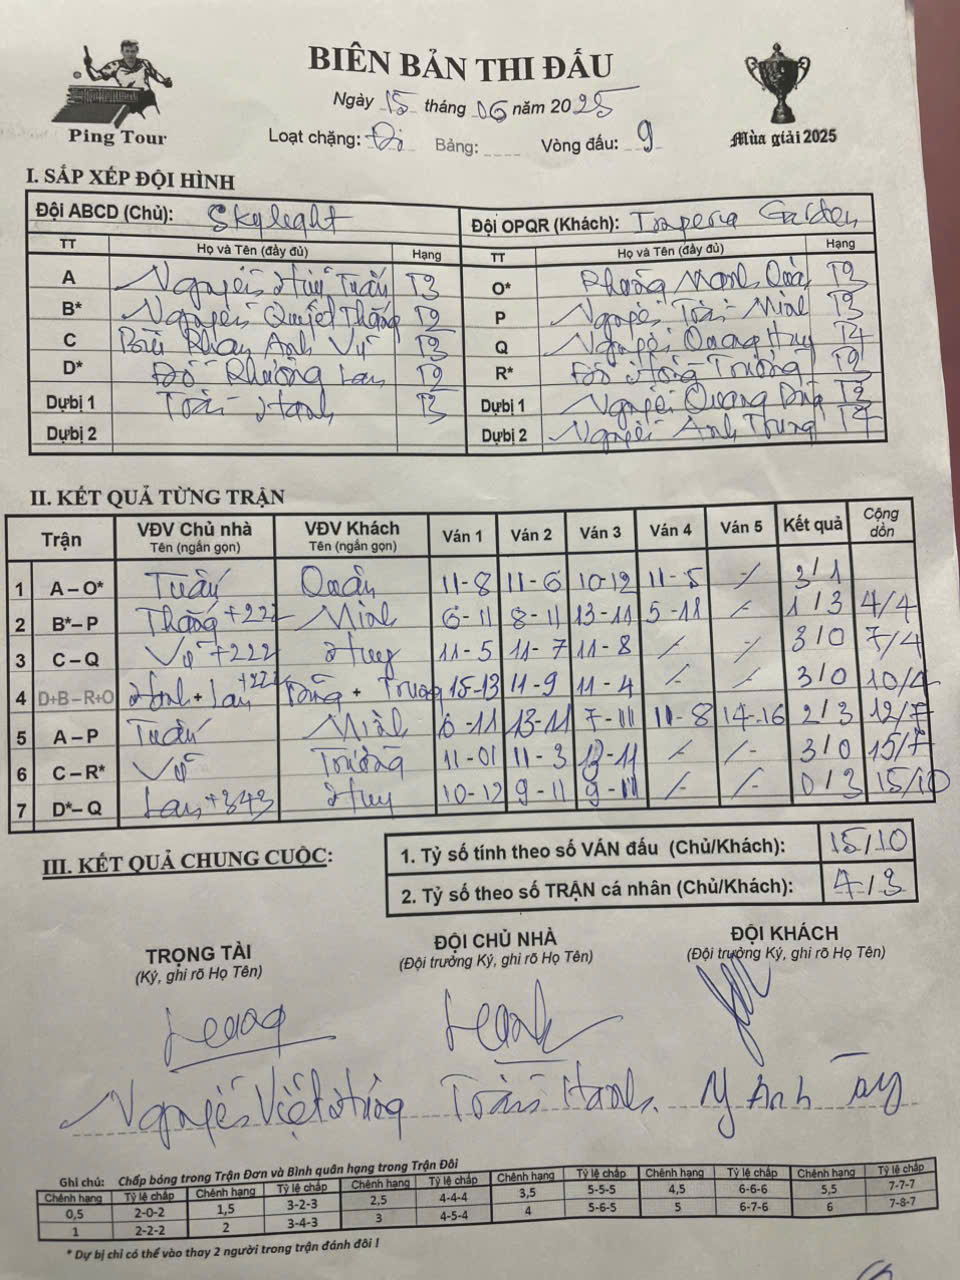 BIÊN BẢN THI ĐẤU
Ngày 15 tháng 06 năm 2025
Ping Tour
Loạt chặng: Đi Bảng: Vòng đấu: 9
Mùa giải 2025
I. SẮP XẾP ĐỘI HÌNH
Đội ABCD (Chủ): Skylight Đội OPQR (Khách): Imperia Garden
TT Họ và Tên (đầy đủ) Hạng TT Họ và Tên (đầy đủ) Hạng
A Nguyễn Huy Tuấn T3 O*
B* Nguyễn Quyết Thắng T2 P Nguyễn T3
C Bùi Phan Anh Vũ T3 Q Nguyễn Quang Huy T4
D* Đỗ Phương Lan T2 R* Đỗ Hồng Trường T2
Dựbị 1 Trần Hạnh T3 Dựbị 1 Nguyễn Quang
Dựbị 2 Dựbị 2 Nguyễn Anh Trung T4
II. KẾT QUẢ TỪNG TRẬN
Trận VĐV Chủ nhà Tên (ngắn gọn) VĐV Khách Tên (ngắn gọn) Ván 1 Ván 2 Ván 3 Ván 4 Ván 5 Kết quả Cộng dồn
1 A – O* Tuấn Quân 11-8 11-6 10-12 11-5 / 3/1
2 B*– P Thắng +222 6-11 8-11 13-11 5-11 / 1/3 4/4
3 C – Q Vũ +222 Huy 11-5 11-7 11-8 / / 3/0 7/4
4 D+B – R+O Hạnh + Lan +222 + Trường 15-13 11-9 11-4 / / 3/0 10/4
5 A – P Tuấn 6-11 13-11 7-11 11-8 14-16 2/3 12/7
6 C – R* Vũ Trường 11-01 11-3 13-11 / / 3/0 15/7
7 D*– Q Lan +343 Huy 10-12 9-11 9-11 / / 0/3 15/10
III. KẾT QUẢ CHUNG CUỘC:
1. Tỷ số tính theo số VÁN đấu (Chủ/Khách): 15/10
2. Tỷ số theo số TRẬN cá nhân (Chủ/Khách): 4/3
TRỌNG TÀI ĐỘI CHỦ NHÀ ĐỘI KHÁCH
(Ký, ghi rõ Họ Tên) (Đội trưởng Ký, ghi rõ Họ Tên) (Đội trưởng Ký, ghi rõ Họ Tên)
Nguyễn Việt Hùng Trần Hạnh.
Ghi chú: Chấp bóng trong Trận Đơn và Bình quân hạng trong Trận Đôi
Chênh hạng Tỷ lệ chấp Chênh hạng Tỷ lệ chấp Chênh hạng Tỷ lệ chấp Chênh hạng Tỷ lệ chấp Chênh hạng Tỷ lệ chấp Chênh hạng Tỷ lệ chấp
0,5 2-0-2 1,5 3-2-3 2,5 4-4-4 3,5 5-5-5 4,5 6-6-6 5,5 7-7-7
1 2-2-2 2 3-4-3 3 4-5-4 4 5-6-5 5 6-7-6 6 7-8-7
* Dự bị chỉ có thể vào thay 2 người trong trận đánh đôi !